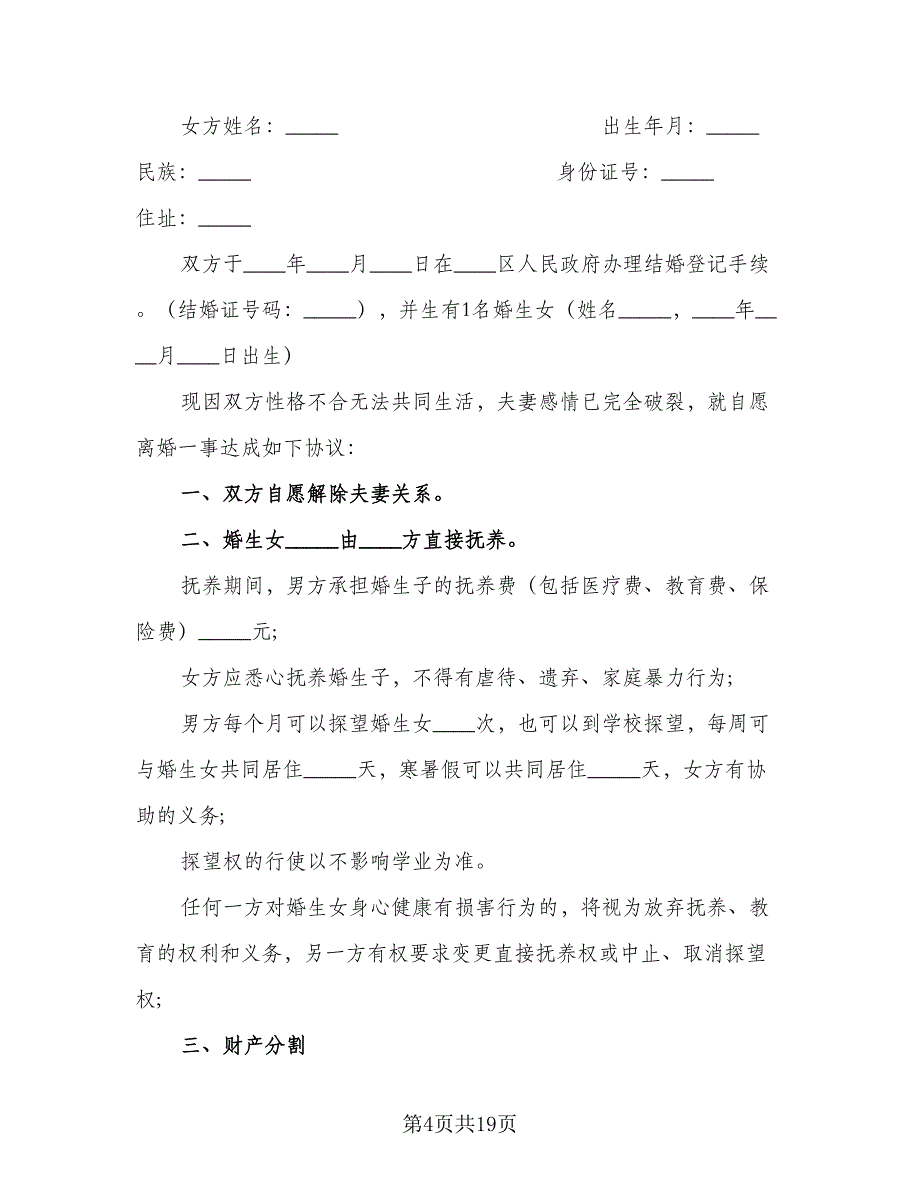 女方姓名：_____ 出生年月：_____
民族：_____ 身份证号：_____
住址：_____
双方于____年____月____日在____区人民政府办理结婚登记手续
。（结婚证号码：_____），并生有1名婚生女（姓名_____，____年__
__月____日出生）
现因双方性格不合无法共同生活，夫妻感情已完全破裂，就自愿
离婚一事达成如下协议：
一、双方自愿解除夫妻关系。
二、婚生女_____由____方直接抚养。
抚养期间，男方承担婚生子的抚养费（包括医疗费、教育费、保
险费）_____元;
女方应悉心抚养婚生子，不得有虐待、遗弃、家庭暴力行为;
男方每个月可以探望婚生女____次，也可以到学校探望，每周可
与婚生女共同居住_____天，寒暑假可以共同居住_____天，女方有协
助的义务;
探望权的行使以不影响学业为准。
任何一方对婚生女身心健康有损害行为的，将视为放弃抚养、教
育的权利和义务，另一方有权要求变更直接抚养权或中止、取消探望
权;
三、财产分割
第4页共19页